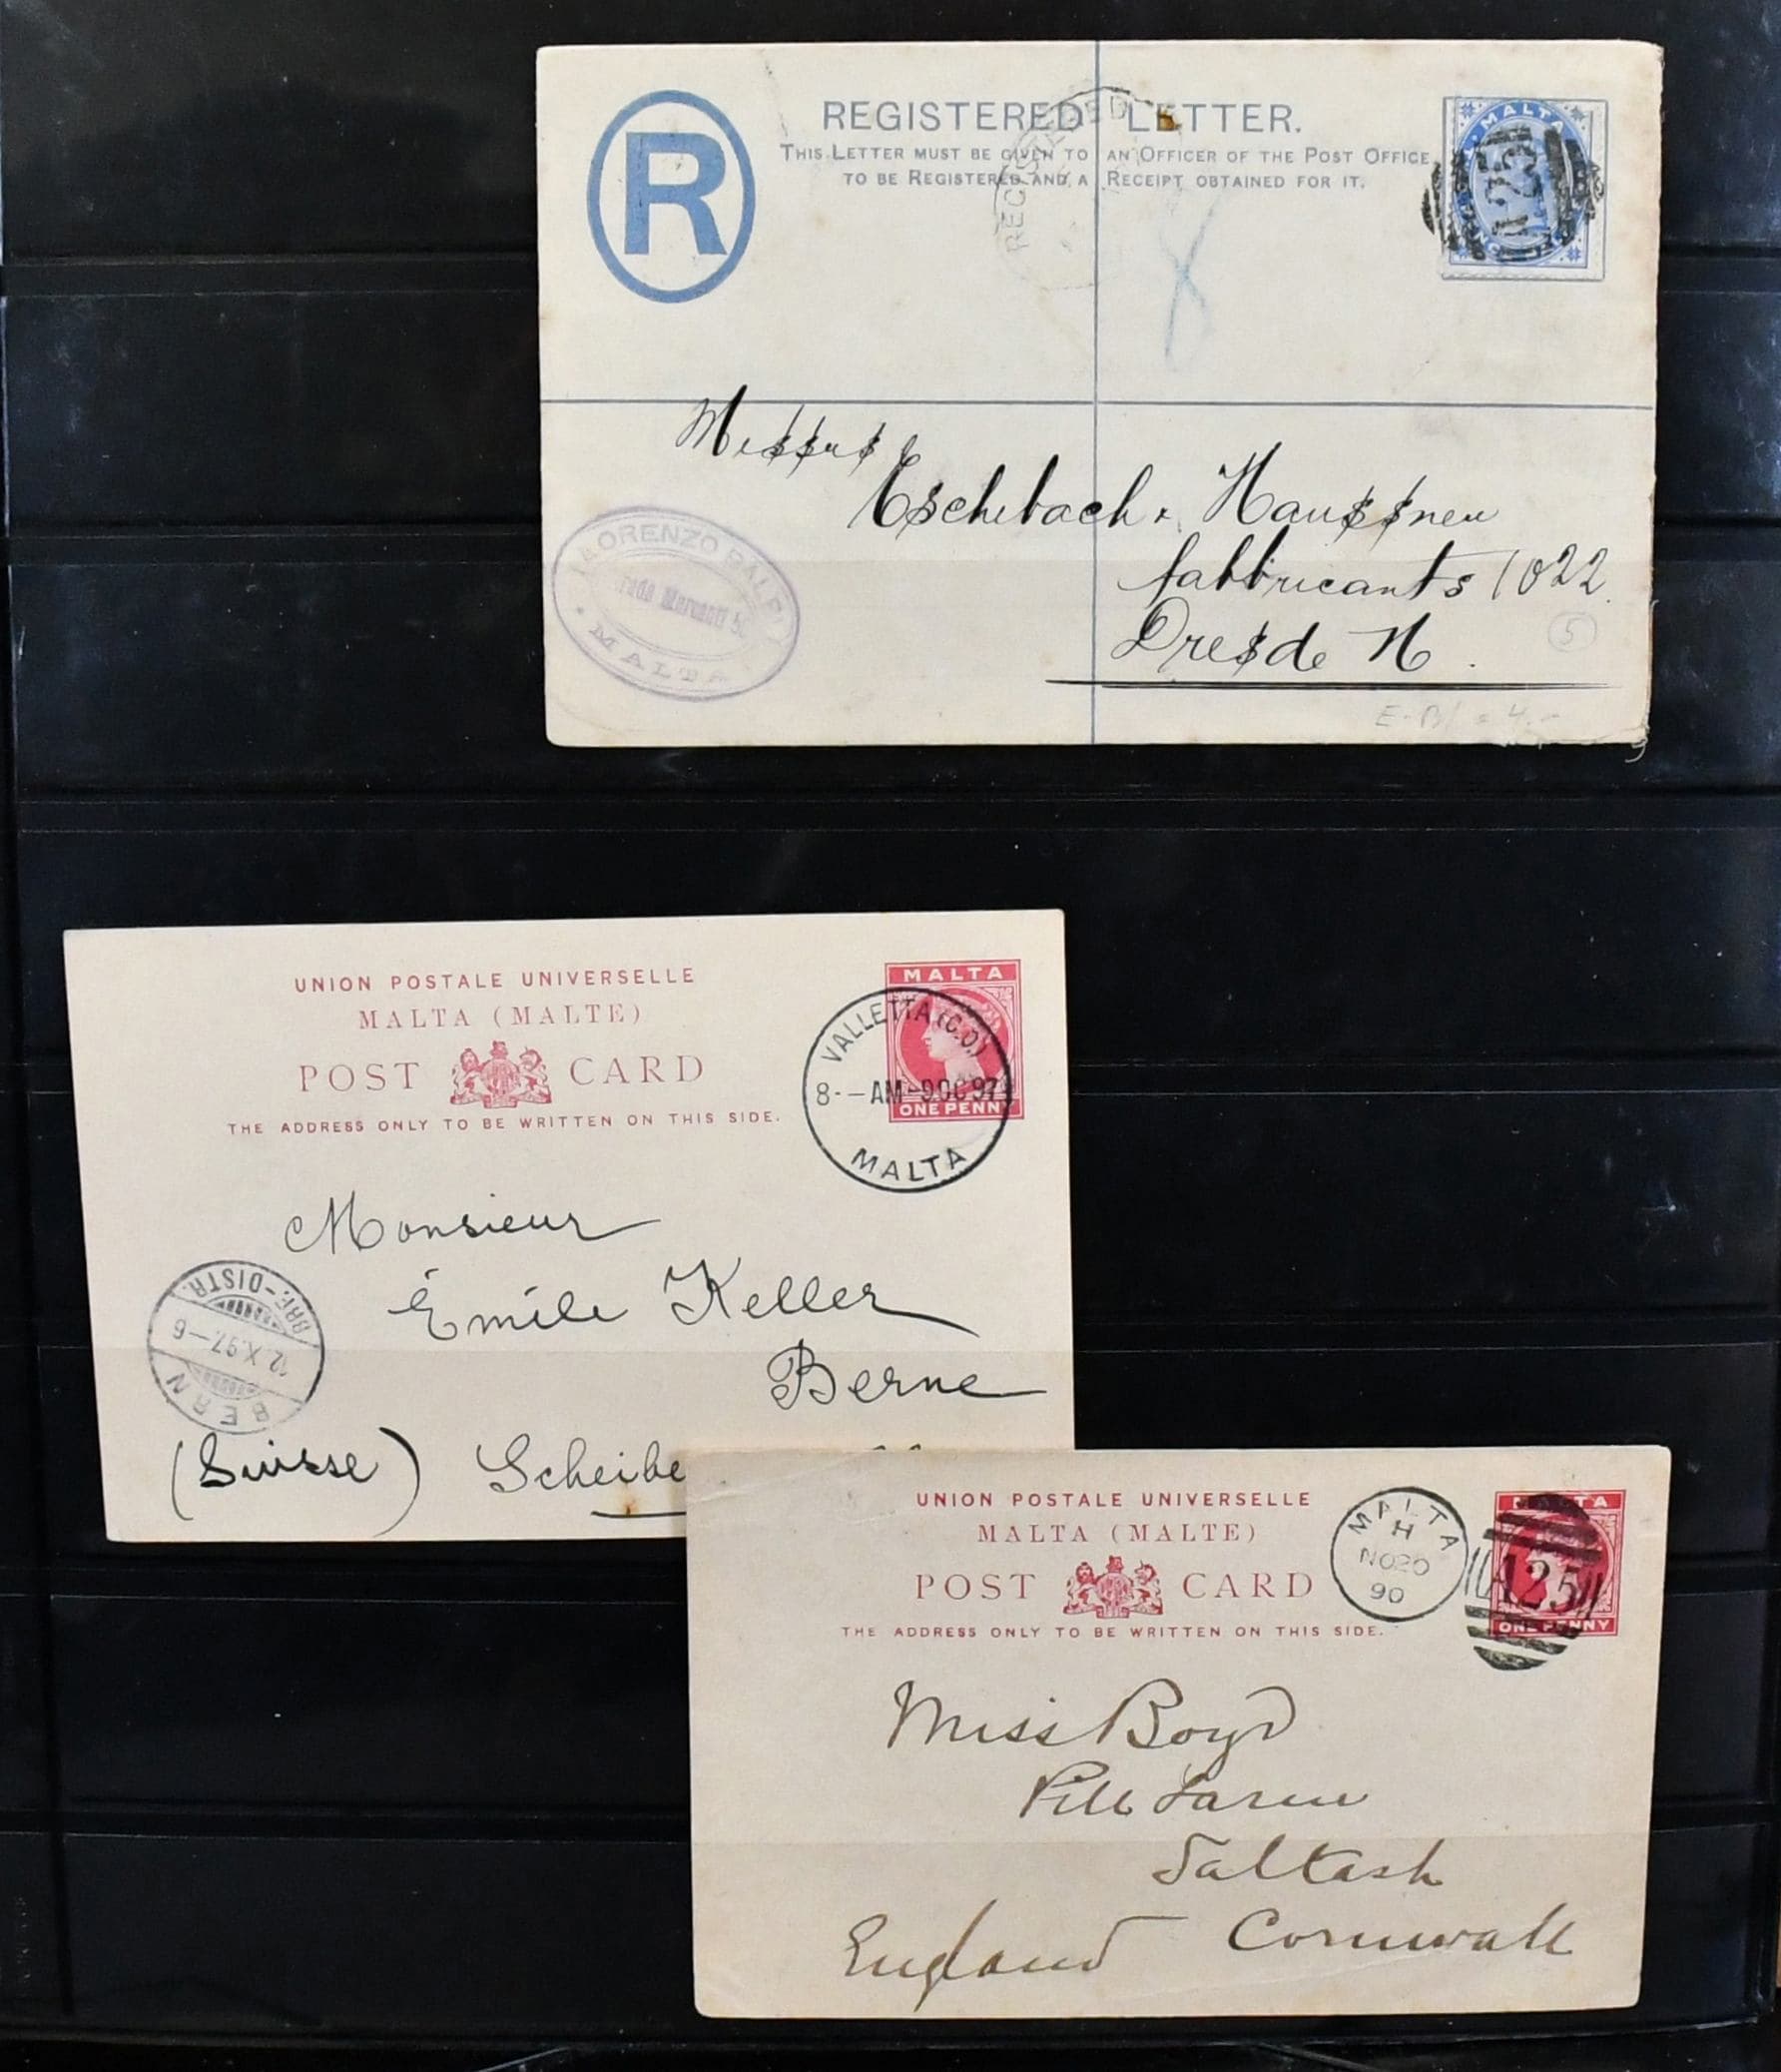 REGISTERED LETTER.
THIS LETTER MUST BE GIVEN TO AN OFFICER OF THE POST OFFICE
TO BE REGISTERED AND A RECEIPT OBTAINED FOR IT.
R
REGISTERED
MALTA
A25
Messrs
Eschebach & Haussner
fabbricants 1022
Dresde N.
5
LORENZO
MALTA
UNION POSTALE UNIVERSELLE
MALTA (MALTE)
POST CARD
THE ADDRESS ONLY TO BE WRITTEN ON THIS SIDE.
MALTA
ONE PENNY
VALLETTA (G.O.)
8--AM-9OC97
MALTA
Monsieur
Émile Keller
Berne
(Suisse) Scheibe
BERN
12.X.97.-6
BRF.-DISTR.
UNION POSTALE UNIVERSELLE
MALTA (MALTE)
POST CARD
THE ADDRESS ONLY TO BE WRITTEN ON THIS SIDE.
MALTA
H
NO20
90
MALTA
A25
ONE PENNY
Miss Boyd
Pill Farm
Saltash
Cornwall
England